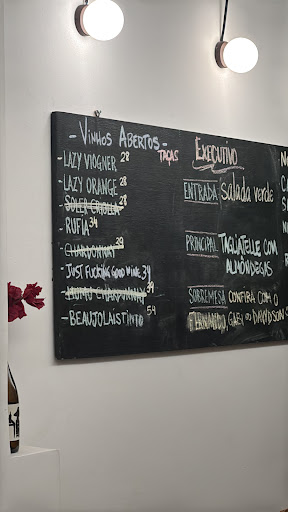 - VINHOS ABERTOS -
TAÇAS
- LAZY VIOGNER 28
- LAZY ORANGE 28
- SOLER CRIOLLA 28
- RUFIA 34
- CHARDONNAY 29
- JUST FUCKING GOOD WINE 34
- CHARDONNAY 39
- BEAUJOLAIS TINTO 54
EXECUTIVO
ENTRADA Salada verde
PRINCIPAL TAGLIATELLE COM
ALMÔNDEGAS
SOBREMESA CONFIRA COM O
FERNANDO, GABY OU DAVIDSON